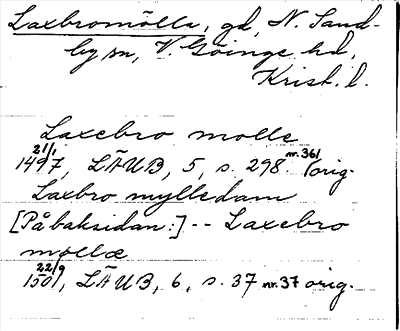 Laxbromölla, gd, N. Sand-
by sn, V. Göinge hd,
Krist. l.
Laxebro molle
21/1 1497, LÄUB, 5, s. 298 nr. 361 (orig.
Laxbro mylledam
[På baksidan:] -- Laxebro
møllæ
22/9 1501, LÄUB, 6, s. 37 nr. 37 orig.